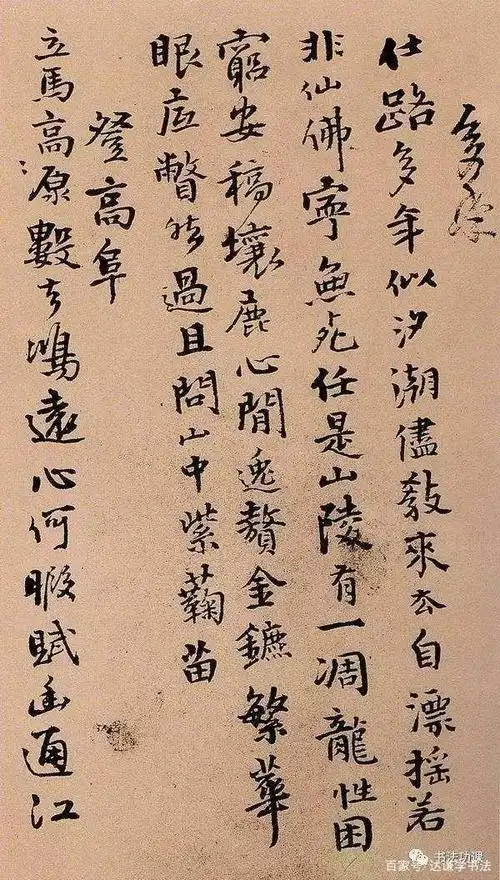 仕路多年似汐潮儘教來去自漂摇若
非仙佛寧無死任是山陵有一凋龍性困
窮安稿壤鹿心閒逸贅金鑣繁華
眼底瞥然過且問山中紫蘜苗
登高阜
立馬高源數去鴻遠心何暇賦幽通江
书法功课
百家号/达谦学书法